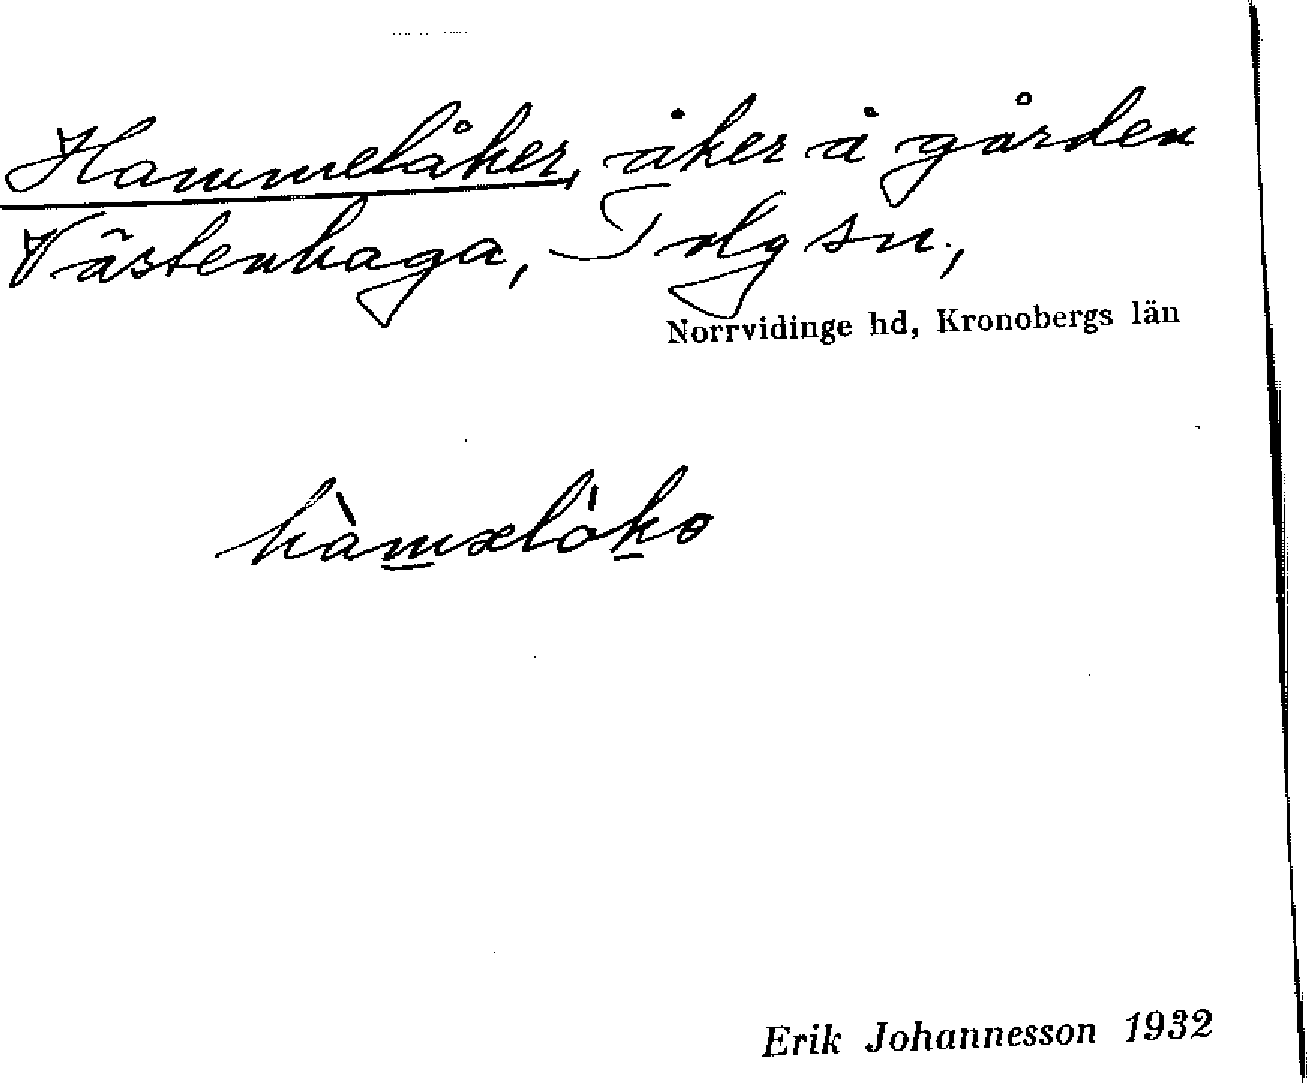 Hammelåker, åker å gården
Västenhaga, Tolg sn.,
Norrvidinge hd, Kronobergs län
Erik Johannesson 1932